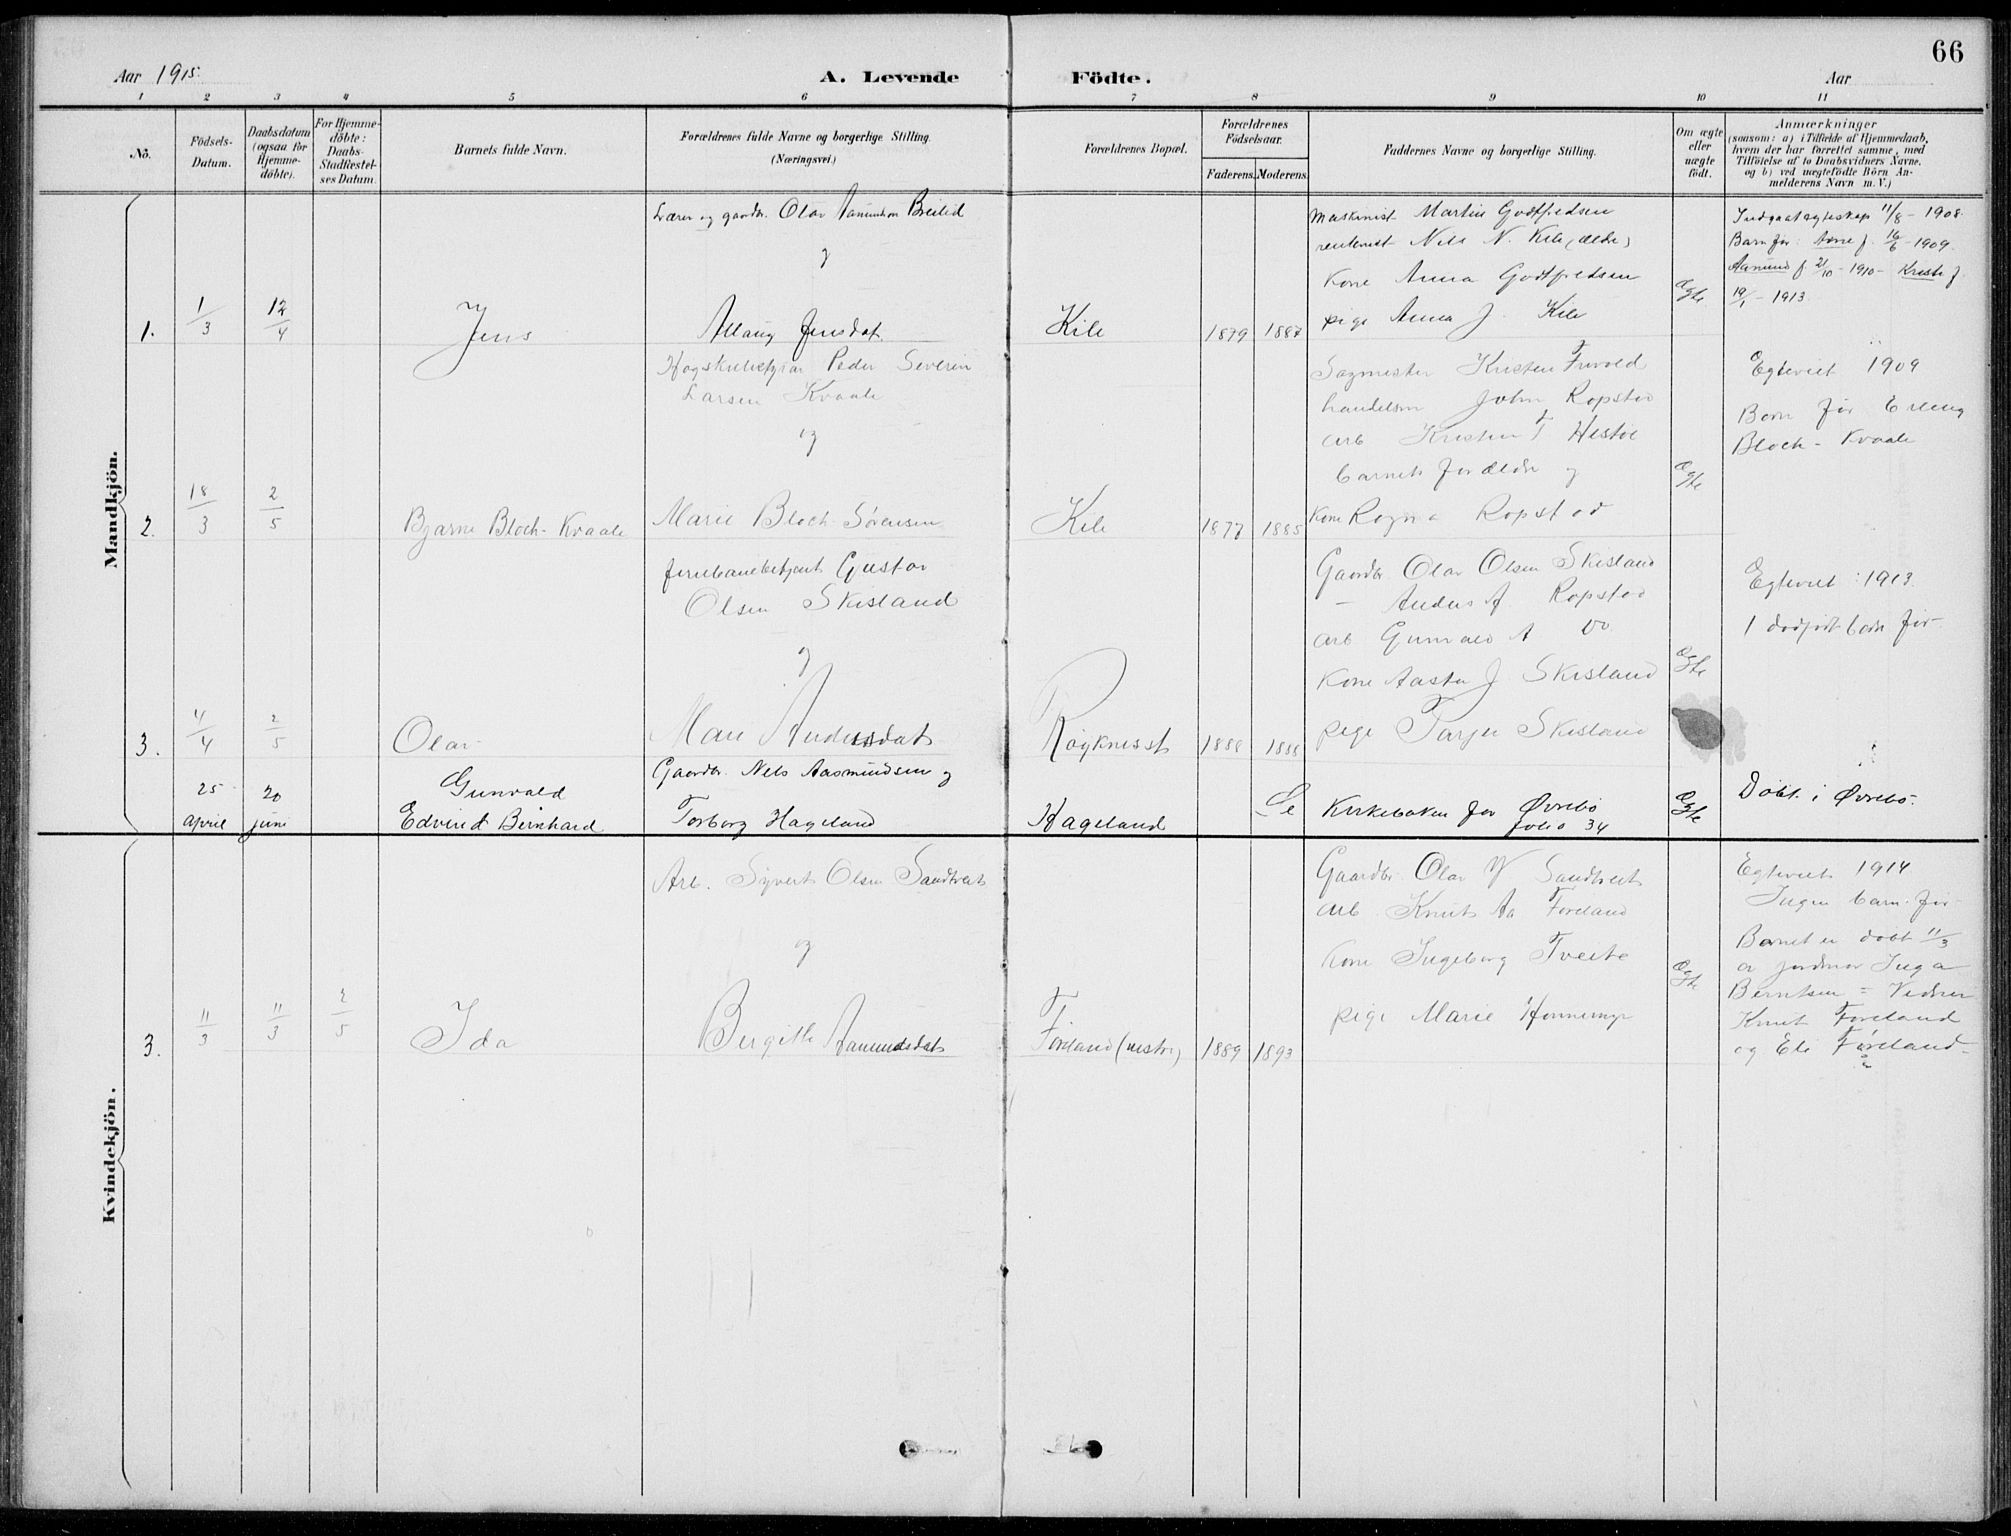 66
Aar 1915.
A. Levende Födte.
Aar
1 2 3 4 5 6 7 8 9 10 11
No.
Födsels-Datum.
Daabsdatum (ogsaa for Hjemme-döbte).
For Hjemme-döbte: Daabs-Stadfæstel-ses Datum.
Barnets fulde Navn.
Forældrenes fulde Navne og borgerlige Stilling.
(Næringsvei.)
Forældrenes Bopæl.
Forældrenes Födselsaar.
Faderens. Moderens.
Faddernes Navne og borgerlige Stilling.
Om ægte eller uægte födt.
Anmærkninger
(saasom: a) i Tilfælde af Hjemmedaab,
hvem der har forrettet samme, med
Tilföielse af to Daabsvidners Navne,
og b) ved uægtefödte Börn An-
melderens Navn m. V.)
Mandkjön.
Lærer og gaardbr. Olav Aamundson Breilid
og
Aslaug Jensdat.
1.
1/3
12/4
Jens
Kile
1879 1887
Maskinist Martin Godtfredsen
rentenist Nels N. Kile (ældre)
Kone Anna Godtfredsen
pige Anna J. Kile
Ægte
Indgaat ægteskap 11/8 - 1908.
Barn før: Arne f. 16/6 - 1909.
Aamund f. 21/10 - 1910 - Kristi f.
19/1 - 1913
Peder Severin
Larsen Kvaale
og
Marie Bloch Sørensen
2.
18/3
2/5
Bjarne Bloch-Kvaale
Kile
1877 1885
Sagmester Kristen Frivold
handelsm John Ropstad
arb Kristen T Hestøl
barnets forældre og
Kone Ragna Ropstad
Ægte
Egteviet 1909
Barn før Erling
Bloch-Kvaale
jernbanebetjent Gustav
Olsen Skisland
og
Mari Andersdat
3.
4/4
2/5
Olav
Røyknesst
1888 1888
Gaardbr Olav Olsen Skisland
— Anders A. Ropstad
arb Gunvald A do
Kone Aasta J Skisland
pige Tarjer Skisland
Ægte
Egteviet 1913.
1 dødfødt barn før
25 april
20 juni
Gunvald
Edvin Bernhard
Gaardbr. Nels Aasmundsen og
Torborg Hageland
Hageland
Se Kirkeboken for Øvrebø
folio 34
Ægte
Døbt i Øvrebø.
Kvindekjön.
Arb. Syvert Olsen Sandtveit
og
Birgitte Aamundsdat
3.
11/3
11/3
2/5
Ida
Føreland (vestre)
1889 1893
Gaardbr Olav Sandtveit
arb Knut Aa Føreland
Kone Ingeborg Tveite
pige Marie Honnemyr
Ægte
Egteviet 1914
Ingen barn før
Barnet er døbt 11/3
av jordmor Inga
Berntsen = Vidner
Knut Føreland
og Eli Føreland